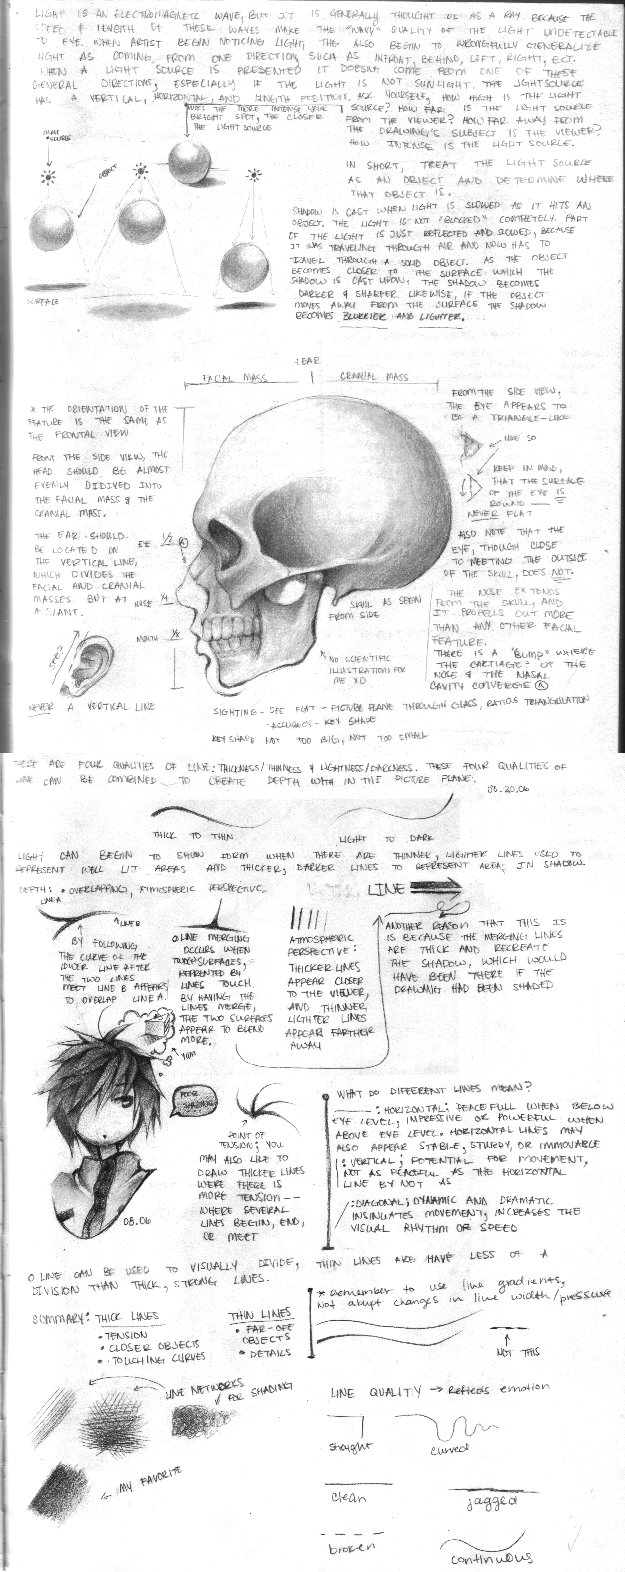 LIGHT IS AN ELECTROMAGNETIC WAVE, BUT IT IS GENERALLY THOUGHT OF AS A RAY. BECAUSE THE
& LENGTH OF THESE WAVES MAKE THE "WAVY" QUALITY OF THE LIGHT UNDETECTABLE
TO EYE. WHEN ARTIST BEGIN NOTICING LIGHT, THE ALSO BEGIN TO WRONGFULLY GENERALIZE
LIGHT AS COMING FROM ONE DIRECTION, SUCH AS INFRONT, BEHIND, LEFT, RIGHT, ECT.
WHEN A LIGHT SOURCE IS PRESENTED IT DOESN'T COME FROM ONE OF THESE
GENERAL DIRECTIONS, ESPECIALLY IF THE LIGHT IS NOT SUNLIGHT. THE LIGHTSOURCE
HAS A VERTICAL, HORIZONTAL, AND LENGTH POSITION. ASK YOURSELF, HOW HIGH IS THE LIGHT
SOURCE? HOW FAR IS THE LIGHT SOURCE
FROM THE VIEWER? HOW FAR AWAY FROM
THE DRAWING'S SUBJECT IS THE VIEWER?
HOW INTENSE IS THE LIGHT SOURCE.
NOTE: THE MORE INTENSE YOUR
BRIGHT SPOT, THE CLOSER
THE LIGHT SOURCE
LIGHT
SOURCE
OBJECT
SURFACE
IN SHORT, TREAT THE LIGHT SOURCE
AS AN OBJECT AND DETERMINE WHERE
THAT OBJECT IS.
SHADOW IS CAST WHEN LIGHT IS SLOWED AS IT HITS AN
OBJECT. THE LIGHT IS NOT "BLOCKED" COMPLETELY. PART
OF THE LIGHT IS JUST REFLECTED AND SLOWED, BECAUSE
IT WAS TRAVELING THROUGH AIR AND NOW HAS TO
TRAVEL THROUGH A SOLID OBJECT. AS THE OBJECT
BECOMES CLOSER TO THE SURFACE WHICH THE
SHADOW IS CAST UPON, THE SHADOW BECOMES
DARKER & SHARPER. LIKEWISE, IF THE OBJECT
MOVES AWAY FROM THE SURFACE THE SHADOW
BECOMES BLURRIER AND LIGHTER.
EAR
FACIAL MASS
CRANIAL MASS
* THE ORIENTATION OF THE
FEATURE IS THE SAME AS
THE FRONTAL VIEW
FROM THE SIDE VIEW, THE
HEAD SHOULD BE ALMOST
EVENLY DIDIVED INTO
THE FACIAL MASS & THE
CRANIAL MASS.
THE EAR SHOULD
BE LOCATED ON
THE VERTICAL LINE,
WHICH DIVIDES THE
FACIAL AND CRANIAL
MASSES BUT AT
A SLANT.
EYE 1/2
A
NOSE
MOUTH
NEVER A VERTICAL LINE
SKULL AS SEEN
FROM SIDE
NO SCIENTIFIC
ILLUSTRATION FOR
ME XD
FROM THE SIDE VIEW,
THE EYE APPEARS TO
BE A TRIANGLE-LIKE
LIKE SO
KEEP IN MIND,
THAT THE SURFACE
OF THE EYE IS
ROUND
NEVER FLAT
ALSO NOTE THAT THE
EYE, THOUGH CLOSE
TO MEETING THE OUTSIDE
OF THE SKULL, DOES NOT.
THE NOSE EXTENDS
FROM THE SKULL, AND
IT PROPELLS OUT MORE
THAN ANY OTHER FACIAL
FEATURE.
THERE IS A "BUMP" WHERE
THE CARTIAGE? OF THE
NOSE & THE NASAL
CAVITY CONVERGE A
SIGHTING - SEE FLAT - PICTURE PLANE THROUGH GLASS, RATIOS TRIANGULATION
- ACCURACY - KEY SHAPE
KEY SHAPE NOT TOO BIG, NOT TOO SMALL
THERE ARE FOUR QUALITIES OF LINE: THICKNESS/THINNESS & LIGHTNESS/DARKNESS. THESE FOUR QUALITIES OF
LINE CAN BE COMBINED TO CREATE DEPTH WITH IN THE PICTURE PLANE.
08.30.06
THICK TO THIN
LIGHT TO DARK
LIGHT CAN BEGIN TO SHOW FORM WHEN THERE ARE THINNER, LIGHTER LINES USED TO
REPRESENT WELL LIT AREAS AND THICKER, DARKER LINES TO REPRESENT AREAS IN SHADOW.
DEPTH: • OVERLAPPING, ATMOSPHERIC PERSPECTIVE
LINE
LINE A
LINE B
BY FOLLOWING
THE CURVE OF THE
LOWER LINE AFTER
THE TWO LINES
MEET LINE B APPEARS
TO OVERLAP LINE A.
LINE MERGING
OCCURS WHEN
TWO SURFACES,
REPRENTED BY
LINES TOUCH.
BY HAVING THE
LINES MERGE,
THE TWO SURFACES
APPEAR TO BLEND
MORE.
ATMOSPHERIC
PERSPECTIVE:
THICKER LINES
APPEAR CLOSER
TO THE VIEWER,
AND THINNER
LIGHTER LINES
APPEAR FARTHER
AWAY
ANOTHER REASON THAT THIS IS
IS BECAUSE THE MERGING LINES
ARE THICK AND RECREATE
THE SHADOW, WHICH WOULD
HAVE BEEN THERE IF THE
DRAWING HAD BEEN SHADED
YUM
POOR
SHADING
08.06
POINT OF
TENSION; YOU
MAY ALSO LIKE TO
DRAW THICKER LINES
WERE THERE IS
MORE TENSION --
WHERE SEVERAL
LINES BEGIN, END,
OR MEET
WHAT DO DIFFERENT LINES MEAN?
: HORIZONTAL; PEACEFULL WHEN BELOW
EYE LEVEL, IMPRESIVE OR POWERFUL WHEN
ABOVE EYE LEVEL. HORIZONTAL LINES MAY
ALSO APPEAR STABLE, STURDY, OR IMMOVABLE
: VERTICAL; POTENTIAL FOR MOVEMENT,
NOT AS PEACEFUL AS THE HORIZONTAL
LINE BY NOT AS
: DIAGONAL; DYNAMIC AND DRAMATIC
INSINUATES MOVEMENT, INCREASES THE
VISUAL RHYTHM OR SPEED
O LINE CAN BE USED TO VISUALLY DIVIDE, THIN LINES ARE HAVE LESS OF A
DIVISION THAN THICK, STRONG LINES.
* Remember to use line gradients,
Not abupt changes in line width/pressure
NOT THIS
SUMMARY: THICK LINES
• TENSION
• CLOSER OBJECTS
• TOUCHING CURVES
THIN LINES
• FAR-OFF
OBJECTS
• DETAILS
LINE NETWORKS
FOR SHADING
MY FAVORITE
LINE QUALITY → Reflects emotion
straight
curved
clean
jagged
broken
continuous